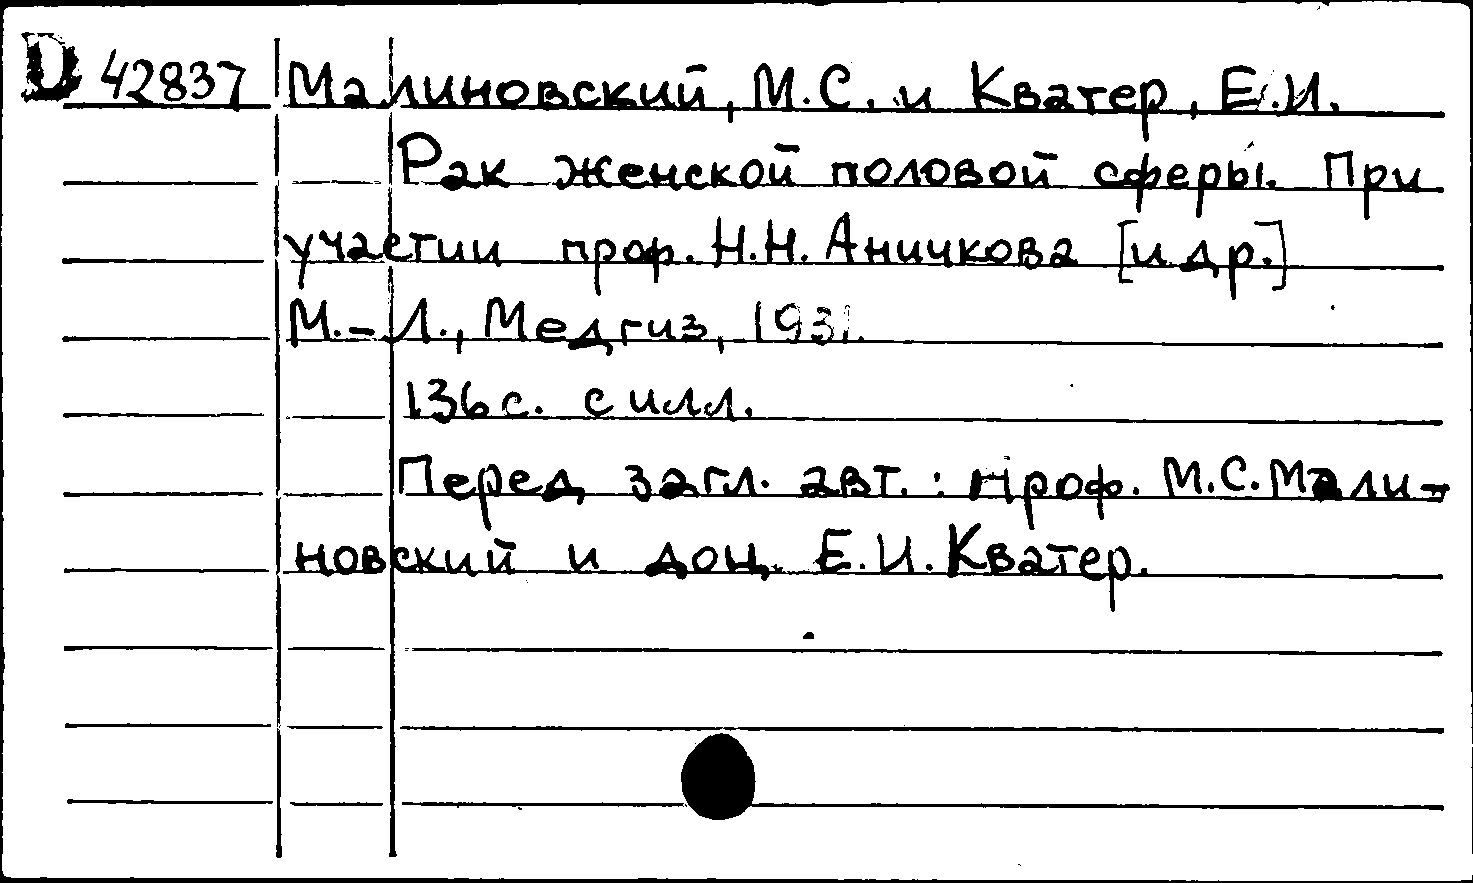 D 42837 Малиновский, М.С. и Кватер, Е.И.
Рак женской половой сферы. При
участии проф. Н.Н. Аничкова [и др.]
М.-Л., Медгиз, 1931.
136 с. с илл.
Перед загл. авт.: проф. М.С. Мали-
новский и доц. Е.И. Кватер.